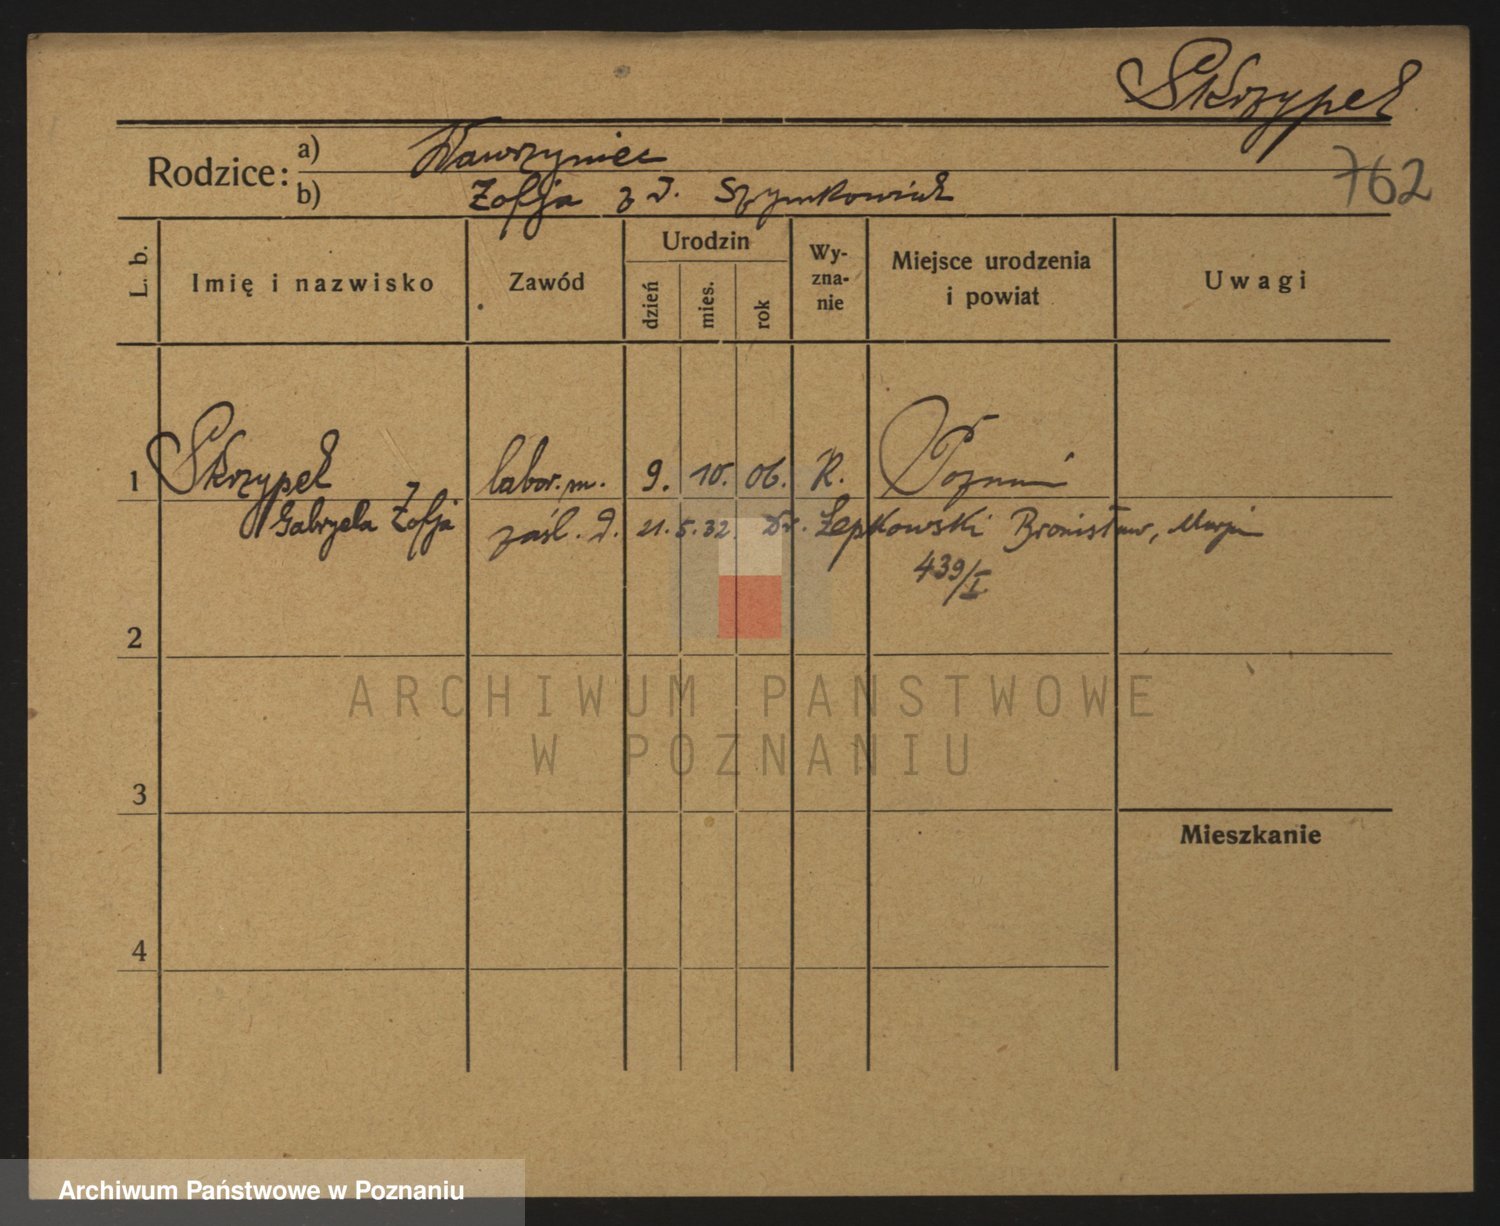 Skrzypek
Rodzice: a) Wawrzyniec
b) Zofja z d. Szymkowiak
762
L. b.
Imię i nazwisko
Zawód
Urodzin
dzień
mies.
rok
Wy-
zna-
nie
Miejsce urodzenia
i powiat
Uwagi
1 Skrzypek labor. m. 9. 10. 06. R. Poznań
Gabryela Zofja zaśl. d. 21. 5. 32 Dr. Łepkowski Bronisław, Marja
439/I.
2
ARCHIWUM PAŃSTWOWE
W POZNANIU
3
Mieszkanie
4
Archiwum Państwowe w Poznaniu